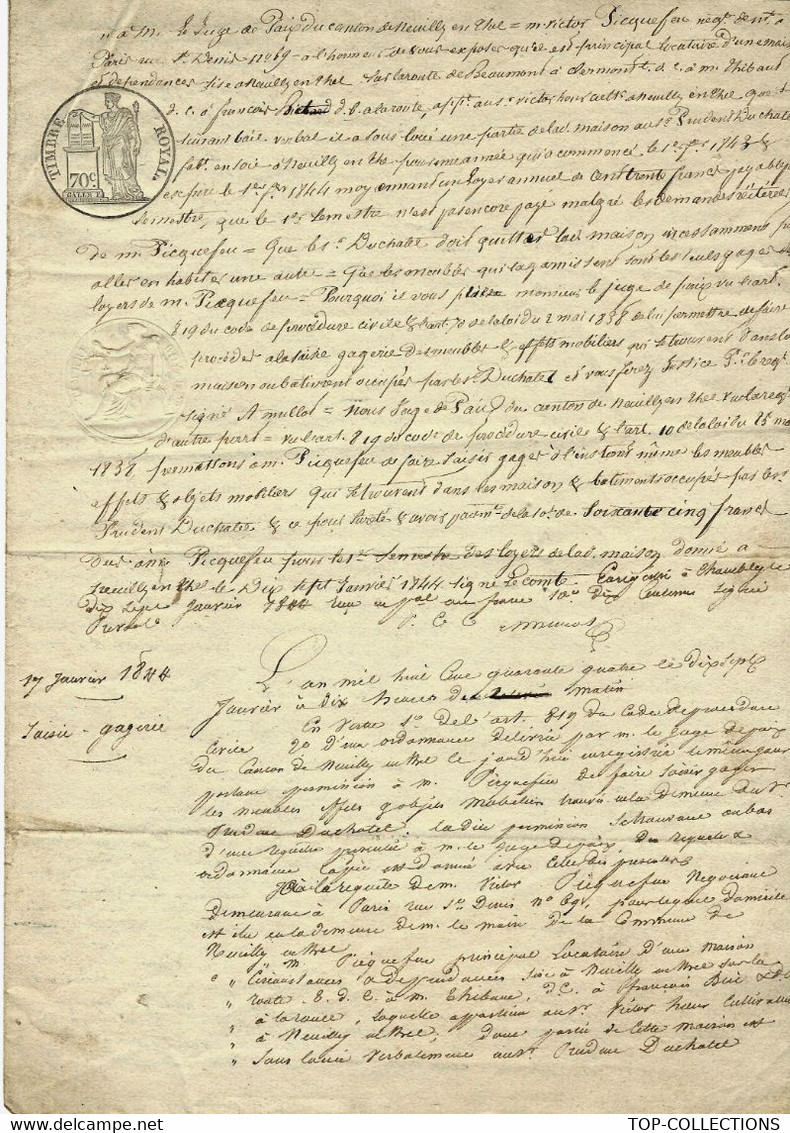 à M. le Juge de Paix du canton de Neuilly en Thel = m. Victor Picquefeu negt. demt. à
Paris rue St. Denis n° 69 = a l'honneur de vous exposer qu'il est principal Locataire d'une maison
et dépendances sise à Neuilly en Thel sur la route de Beaumont à Clermont t. d. c. à m. Thibaut
d. c. à françois d. b. a la route, appt. au sr. victor hour cultr. à neuilly en Thel que
suivant bail verbal il a sous loué une partie de lad. maison au sr. Prudent Duchatel
TIMBRE ROYAL
70c.
fabt. en soie à Neuilly en Thel pour une année qui a commencé le 1er. 1743 &
expire le 1er 1744 moyennant un loyer annuel de cent trente francs payable par
semestre, que le 1er semestre n'est pas encore payé malgré les demandes réitérées
de m. Picquefeu = Que le sr. Duchatel doit quitter lad. maison incessamment pour
aller en habiter une autre = Que les meubles qui la garnissent sont les seuls gages des
loyers de m. Picquefeu = Pourquoi il vous plaise monsieur le juge de paix vu l'art.
819 du code de procédure civile & l'art. de la loi du 2 mai 1838 de lui permettre de faire
procéder à la saisie gagerie des meubles & effets mobiliers qui se trouvent dans la
maison ou batiment occupés par le sr. Duchatel et vous ferez Justice Pr. le reqt.
signé Amullot = Nous Juge de Paix du canton de Neuilly en Thel vu la req.
d'autre part = vu l'art. 819 du code de procédure civile & l'art. 10 de la loi du 25 mai
1838 permettons à m. Picquefeu de faire saisir gager à l'instant même les meubles
effets & objets mobiliers qui se trouvent dans les maison & batiments occupés par le sr.
Prudent Duchatel & ce pour sureté & avoir paiemt. de la so. de soixante cinq francs
dus à m. Picquefeu pour le 1er semestre des loyers de lad. maison donné à
Neuilly en Thel le Dix sept Janvier 1744 signé Lecomte. Enregistré à Chambly le
dix sept Janvier 1844 reçu un franc 10e dix centimes signé
P. C. C.
17 Janvier 1844
Saisie-gagerie
L'an mil huit cent quarante quatre le dix sept
Janvier à dix heures de matin
En vertu 1° de l'art. 819 du Code de procédure
civile 2° d'une ordonnance délivrée par m. le Juge de paix
du Canton de Neuilly en thel le jourd'hui enregistrée le même jour
portant permission à M. Picquefeu de faire saisir gager
les meubles effets & objets mobiliers trouvés en la demeure du Sr.
Prudent Duchatel, la dite permission se trouvant au bas
d'une requête présentée à m. le Juge de paix, des requête &
ordonnance copie est donnée avec celle des présentes
Et à la requête de m. Victor Picquefeu Négociant
demeurant à Paris rue St. Denis n° 69, pour lequel domicile
est élu en la demeure de m. le maire de la Commune de
Neuilly en thel
" M. Picquefeu principal Locataire d'une maison
" Circonstances & dépendances sise à Neuilly en thel sur la
" route t. d. c. à m. Thibaut, d. c. à François
" à la route, laquelle appartient au sr. Victor hour Cultivateur
" à Neuilly en thel, dont partie de cette maison est
" sous louée verbalement au sr. Prudent Duchatel
TOP-COLLECTIONS